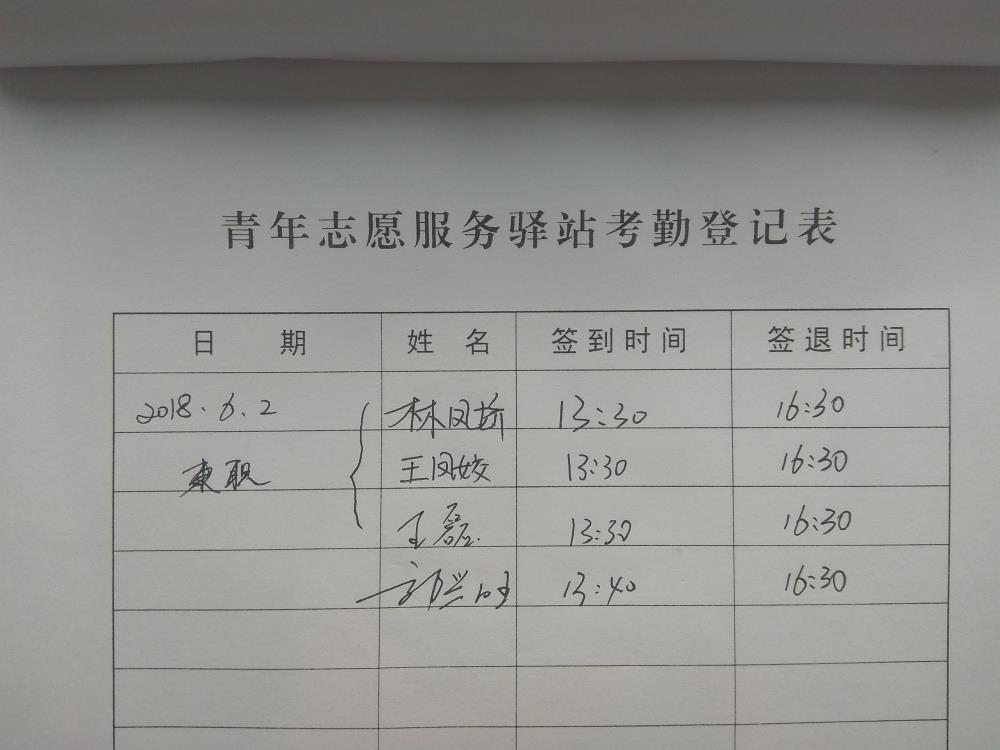 青年志愿服务驿站考勤登记表
日 期 姓 名 签到时间 签退时间
2018.6.2 林凤娇 13:30 16:30
兼职 王凤姣 13:30 16:30
王磊 13:30 16:30
郭兴旺 13:40 16:30